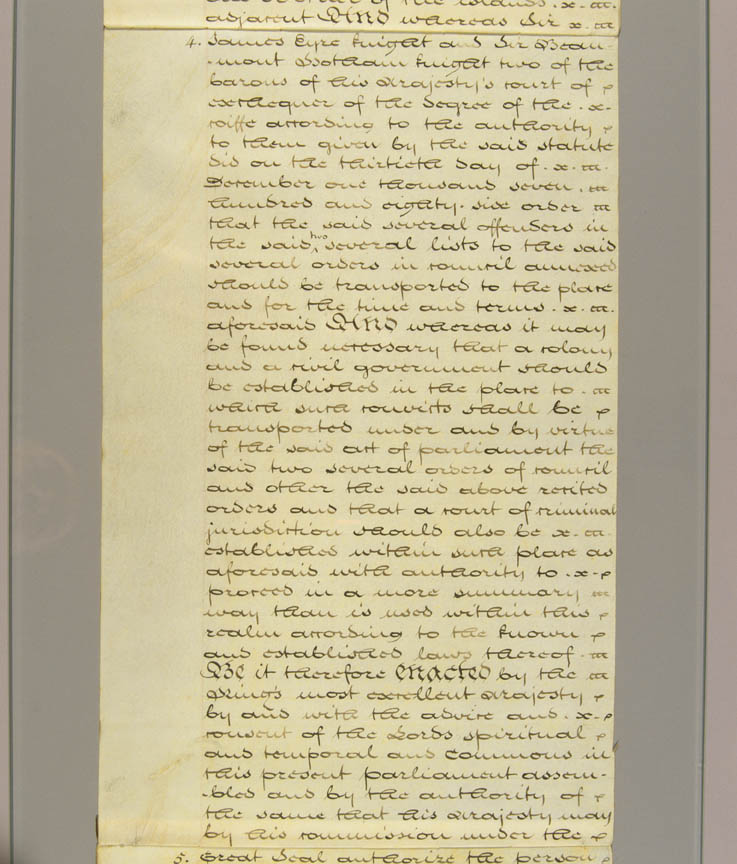 of the islands. x. m.
adjacent And whereas Sir x. m
4. James Eyre knight and Sir Beau-
-mont Hotham knight two of the
barons of his Majesty's court of
exchequer of the degree of the . x.
coiffe according to the authority
to them given by the said statute
did on the thirtieth day of . x. m.
December one thousand seven . m
hundred and eighty. six order m
that the said several offenders in
the said two several lists to the said
several orders in council annexed
should be transported to the place
and for the time and terms . x. m.
aforesaid And whereas it may
be found necessary that a colony
and a civil government should
be established in the place to . m
which such convicts shall be
transported under and by virtue
of the said act of parliament the
said two several orders of council
and other the said above recited
orders and that a court of criminal
jurisdiction should also be x. m.
established within such place as
aforesaid with authority to . x.
proceed in a more summary m
way than is used within this
realm according to the known
and established laws thereof . m
Be it therefore enacted by the m
King's most excellent Majesty
by and with the advice and . x.
consent of the Lords spiritual
and temporal and Commons in
this present parliament assem-
-bled and by the authority of
the same that his Majesty may
by his commission under the
5. Great Seal authorize the person